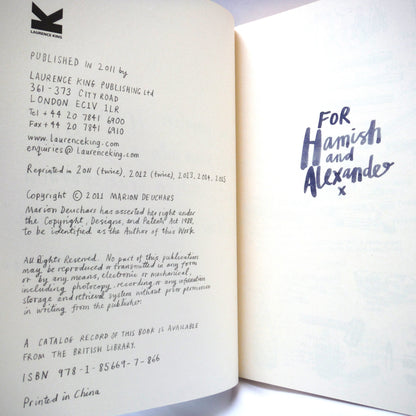 LAURENCE KING
PUBLISHED IN 2011 by
LAURENCE KING PUBLISHING Ltd
361-373 CITY ROAD
LONDON EC1V 1LR
Tel +44 20 7841 6900
Fax +44 20 7841 6910
www.laurenceking.com
enquiries@laurenceking.com
Reprinted in 2011 (twice), 2012 (twice), 2013, 2014, 2015
Copyright © 2011 MARION DEUCHARS
Marion Deuchars has asserted her right under
the Copyright, Designs, and Patents Act 1988,
to be identified as the Author of this Work.
All Rights Reserved. No part of this publication
may be reproduced or transmitted in any form
or by any means, electronic or mechanical,
including photocopy, recording or any information
storage and retrieval system without prior permission
in writing from the publisher.
A CATALOG RECORD OF THIS BOOK IS AVAILABLE
FROM THE BRITISH LIBRARY.
ISBN 978-1-85669-7-866
Printed in China
FOR
Hamish
and
Alexander
x